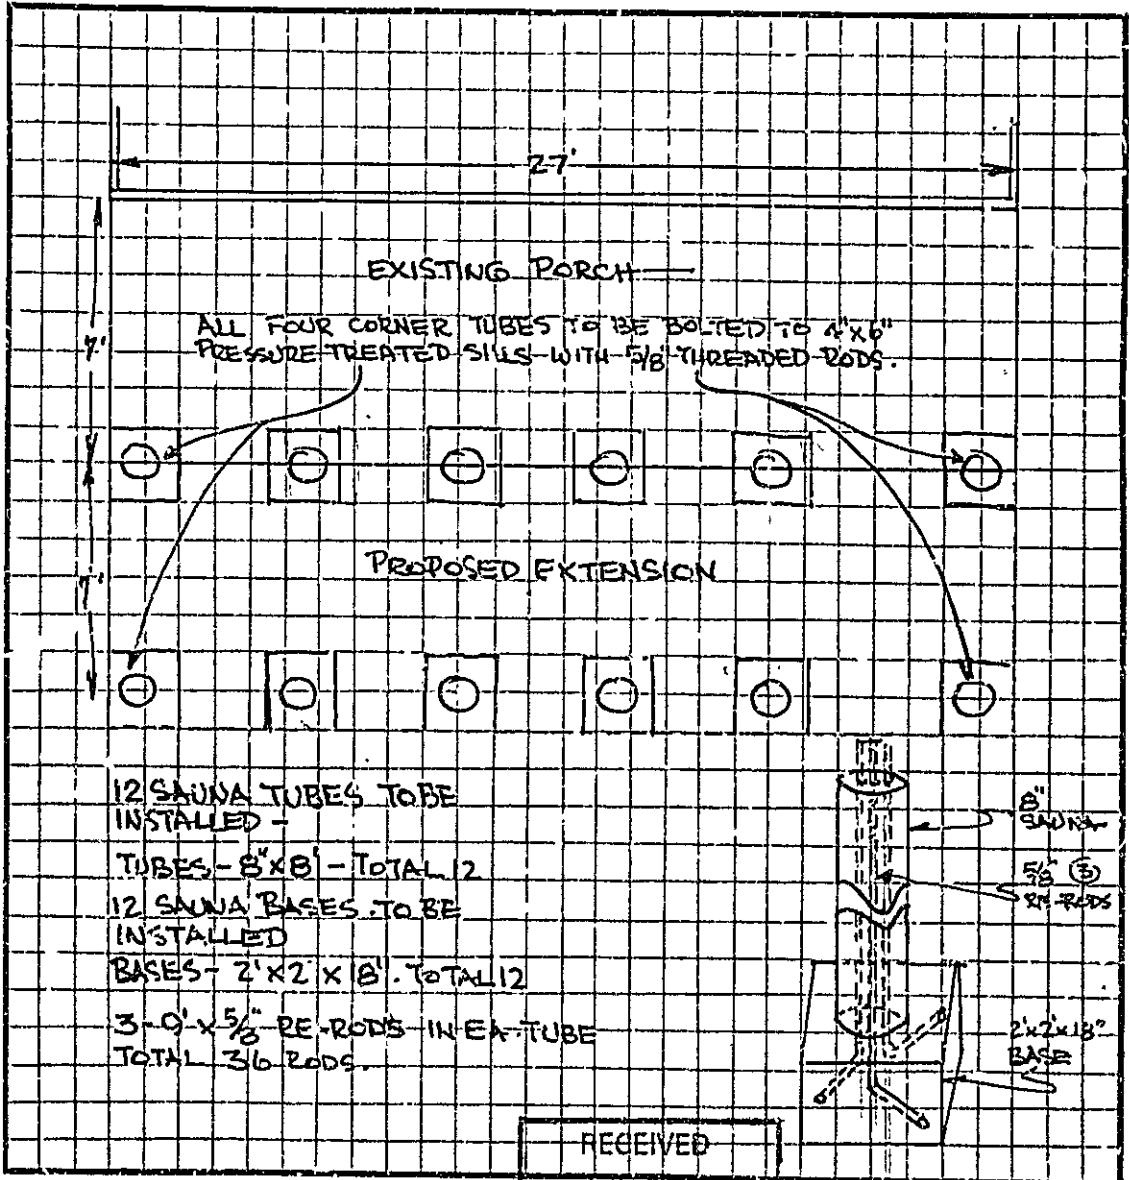 27'
EXISTING PORCH
ALL FOUR CORNER TUBES TO BE BOLTED TO 4"X6"
PRESSURE TREATED SILLS WITH 5/8" THREADED RODS.
7'
PROPOSED EXTENSION
7'
12 SAUNA TUBES TO BE
INSTALLED -
TUBES - 8"X8' - TOTAL 12
12 SAUNA BASES TO BE
INSTALLED
BASES - 2'X2'X18". TOTAL 12
3 - 9' x 5/8" RE-RODS IN EA TUBE
TOTAL 36 RODS.
8"
SAUNA
5/8" 3
RE-RODS
2'x2'x18"
BASE
RECEIVED